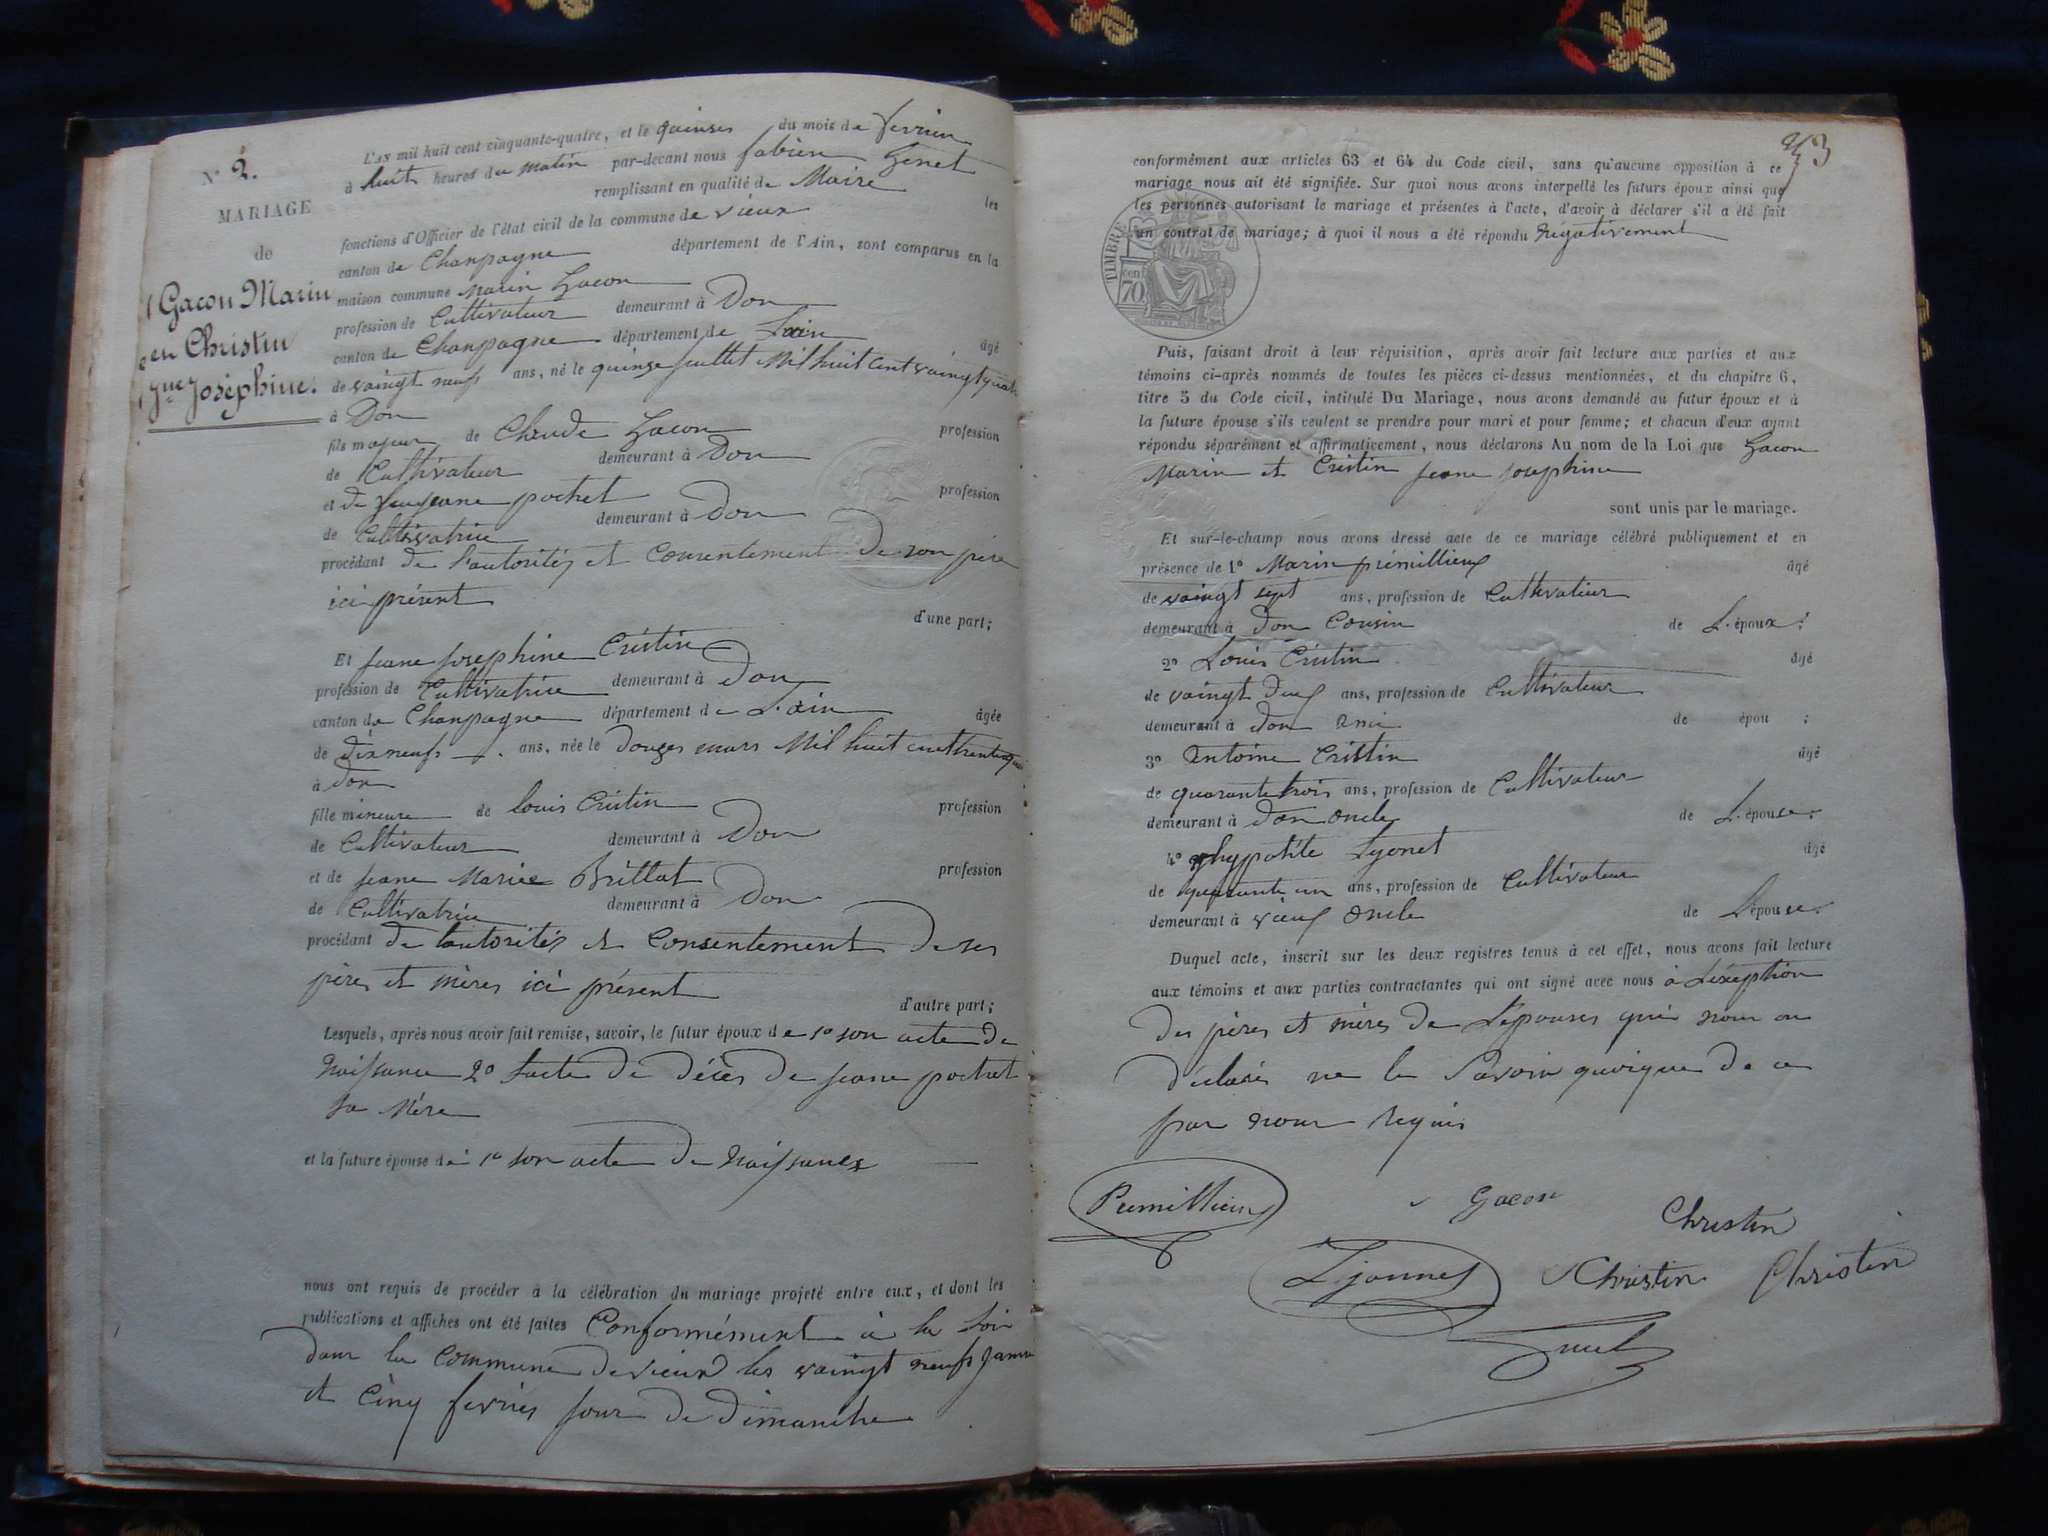 N° 2.
MARIAGE
de
Gacon Marin
en Christin
Jne Joséphine.
L'AN mil huit cent cinquante-quatre, et le quinses du mois de fevrier
à huit heures du matin par-devant nous fabien Genet
remplissant en qualité de Maire les
fonctions d'Officier de l'état civil de la commune de vieux
canton de Chanpagne département de l'Ain, sont comparus en la
maison commune Marin Gacon
profession de Cultivateur demeurant à Don
canton de Chanpagne département de Lain âgé
de vaingt neufs ans, né le quinze juillet Mil huit cent vaingt quatr
à Don
fils majeur de Cheude Gacon profession
de Cultivateur demeurant à Don
et de feu jeane pochet profession
de Cultivatrice demeurant à Don
procédant de l'autorités et Consentement De son père
ici présent
d'une part;
Et jeane josephine Cristin
profession de Cultivatrice demeurant à Don
canton de Chanpagne département de L'ain âgée
de dix neufs ans, née le Douzes mars Mil huit cent trente
à Don
fille mineure de louis Cristin profession
de Cultivateur demeurant à Don
et de jeane Marie Brillat profession
de Cultivatrice demeurant à Don
procédant de lautorités et Consentement De ses
pères et mères ici présent
d'autre part;
Lesquels, après nous avoir fait remise, savoir, le futur époux de 1° son acte de
Naissance 2° Lacte De Décès De jeane pochet
sa Mère
et la future épouse de 1° son acte De Naissances
nous ont requis de procéder à la célébration du mariage projeté entre eux, et dont les
publications et affiches ont été faites Conformément à la Loi
dans la Commune De vieux les vaingt neufs janvi
et Cinq fevries jour De Dimanche
conformément aux articles 63 et 64 du Code civil, sans qu'aucune opposition à ce
mariage nous ait été signifiée. Sur quoi nous avons interpellé les futurs époux ainsi que
les personnes autorisant le mariage et présentes à l'acte, d'avoir à déclarer s'il a été fait
un contrat de mariage; à quoi il nous a été répondu négativement
TIMBRE
cent
70
Puis, faisant droit à leur réquisition, après avoir fait lecture aux parties et aux
témoins ci-après nommés de toutes les pièces ci-dessus mentionnées, et du chapitre 6,
titre 5 du Code civil, intitulé Du Mariage, nous avons demandé au futur époux et à
la future épouse s'ils veulent se prendre pour mari et pour femme; et chacun d'eux ayant
répondu séparément et affirmativement, nous déclarons Au nom de la Loi que Gacon
Marin et Cristin jeane josephine
sont unis par le mariage.
Et sur-le-champ nous avons dressé acte de ce mariage célébré publiquement et en
présence de 1° Marin prémillieux âgé
de vaingt sept ans, profession de Cultivateur
demeurant à Don Cousin de L'époux;
2° Louis Cristin âgé
de vaingt deux ans, profession de Cultivateur
demeurant à don ami de épou ;
3° Antoine Cristin âgé
de quarante trois ans, profession de Cultivateur
demeurant à Don oncle de L'épouse;
4° hypolite Lyonet âgé
de quarante un ans, profession de Cultivateur
demeurant à vieux oncle de L'épouse.
Duquel acte, inscrit sur les deux registres tenus à cet effet, nous avons fait lecture
aux témoins et aux parties contractantes qui ont signé avec nous à Léxéption
Des pères et mères de Lépouses qui nous on
Déclarés ne le Savoir quoique De ce
par nous requis
Premillieux
Gacon
Christin
Lyonnet
Christin
Christin